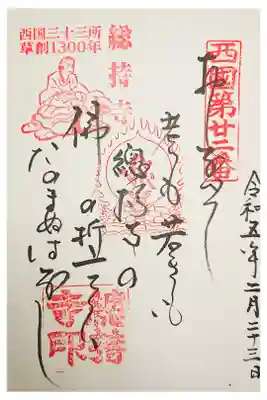 西国第廿二番
おしなべて
老も若きも
総持寺の
佛の誓
たのまぬはなし
令和五年二月二十三日
西国三十三所
草創1300年
総持寺
総持
寺印